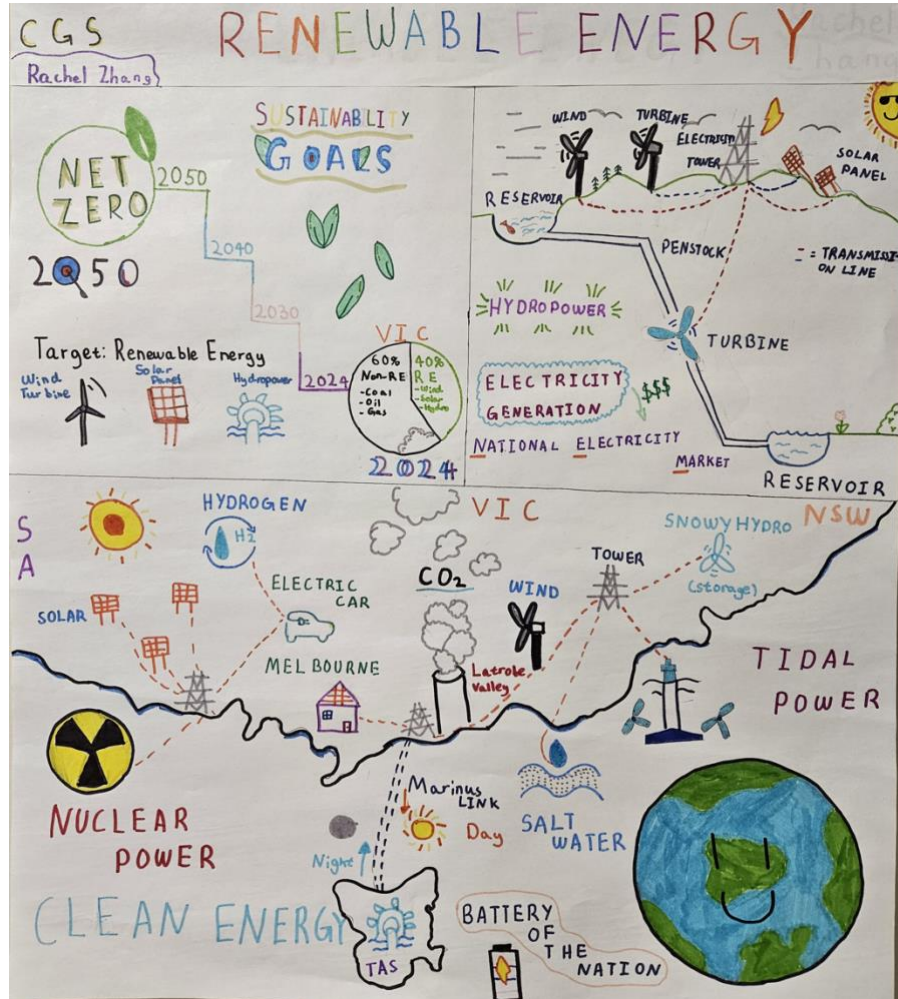 CGS
RENEWABLE ENERGY
Rachel Zhang
Rachel
Zhang
SUSTAINABILITY
GOALS
NET
ZERO
2050
2050
2040
2030
2024
Target: Renewable Energy
Wind
Turbine
Solar
Panel
Hydropower
VIC
60%
Non-RE
-Coal
-Oil
-Gas
40%
RE
-Wind
-Solar
-Hydro
2024
WIND
TURBINE
ELECTRICITY
TOWER
SOLAR
PANEL
RESERVOIR
PENSTOCK
-- = TRANSMISSI
ON LINE
HYDROPOWER
TURBINE
ELECTRICITY
GENERATION
$$$
NATIONAL ELECTRICITY
MARKET
RESERVOIR
SA
HYDROGEN
H2
VIC
NSW
SNOWY HYDRO
(storage)
SOLAR
ELECTRIC
CAR
CO2
WIND
TOWER
MELBOURNE
Latrobe
Valley
TIDAL
POWER
NUCLEAR
POWER
Marinus
LINK
Day
Night
SALT
WATER
CLEAN ENERGY
TAS
BATTERY
OF
THE
NATION